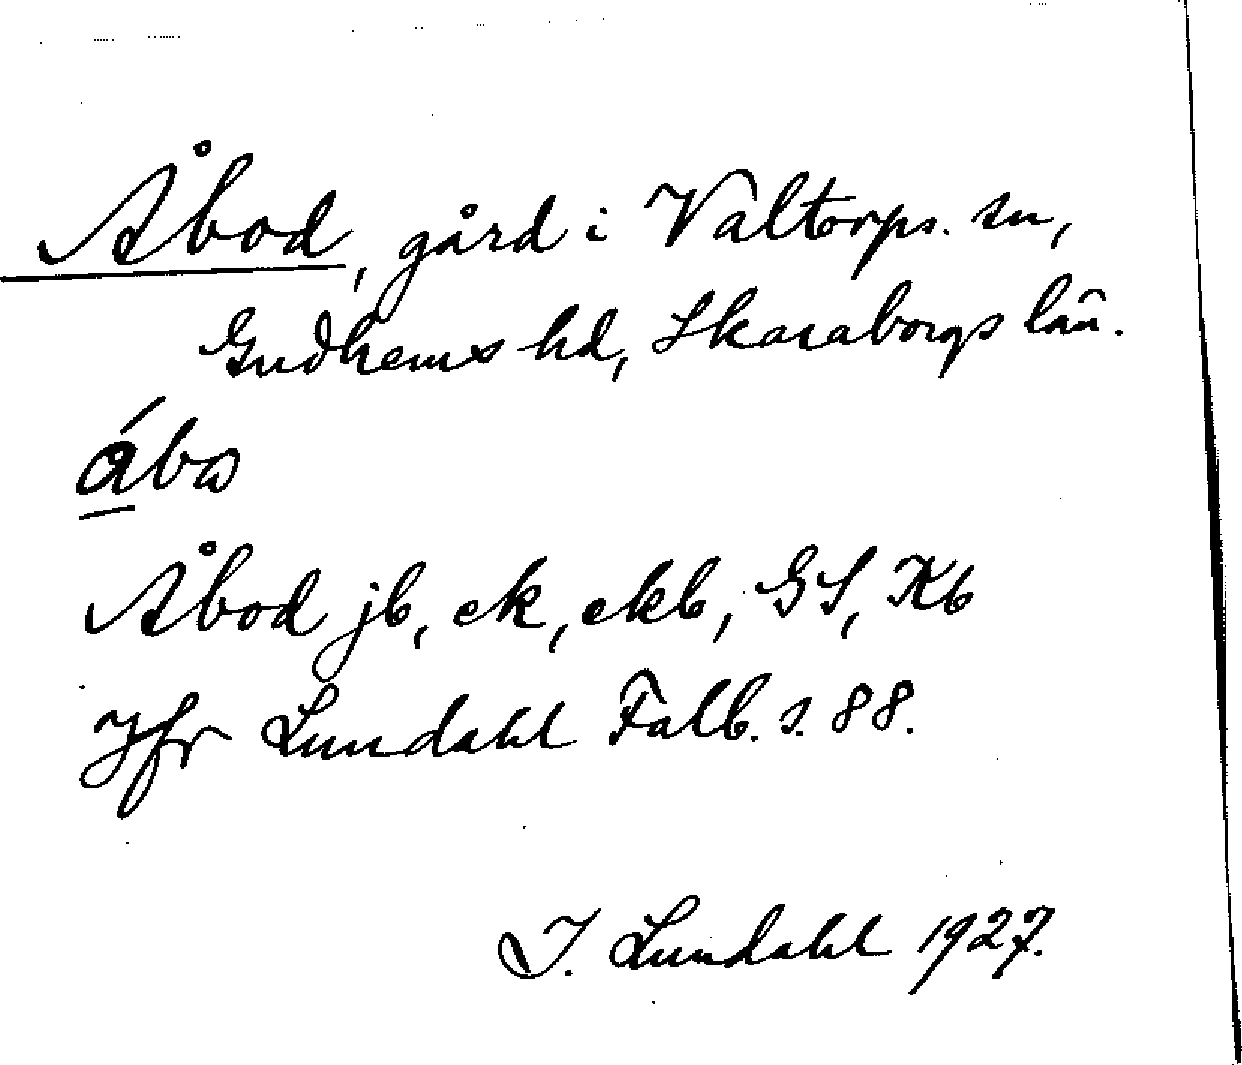 Åbod, gård i Valtorps. sn,
Gudhems hd, Skaraborgs län.
Åbod jb, ek, ekb, GS, Kb
Jfr Lundahl Falb. s. 88.
I. Lundahl 1927.